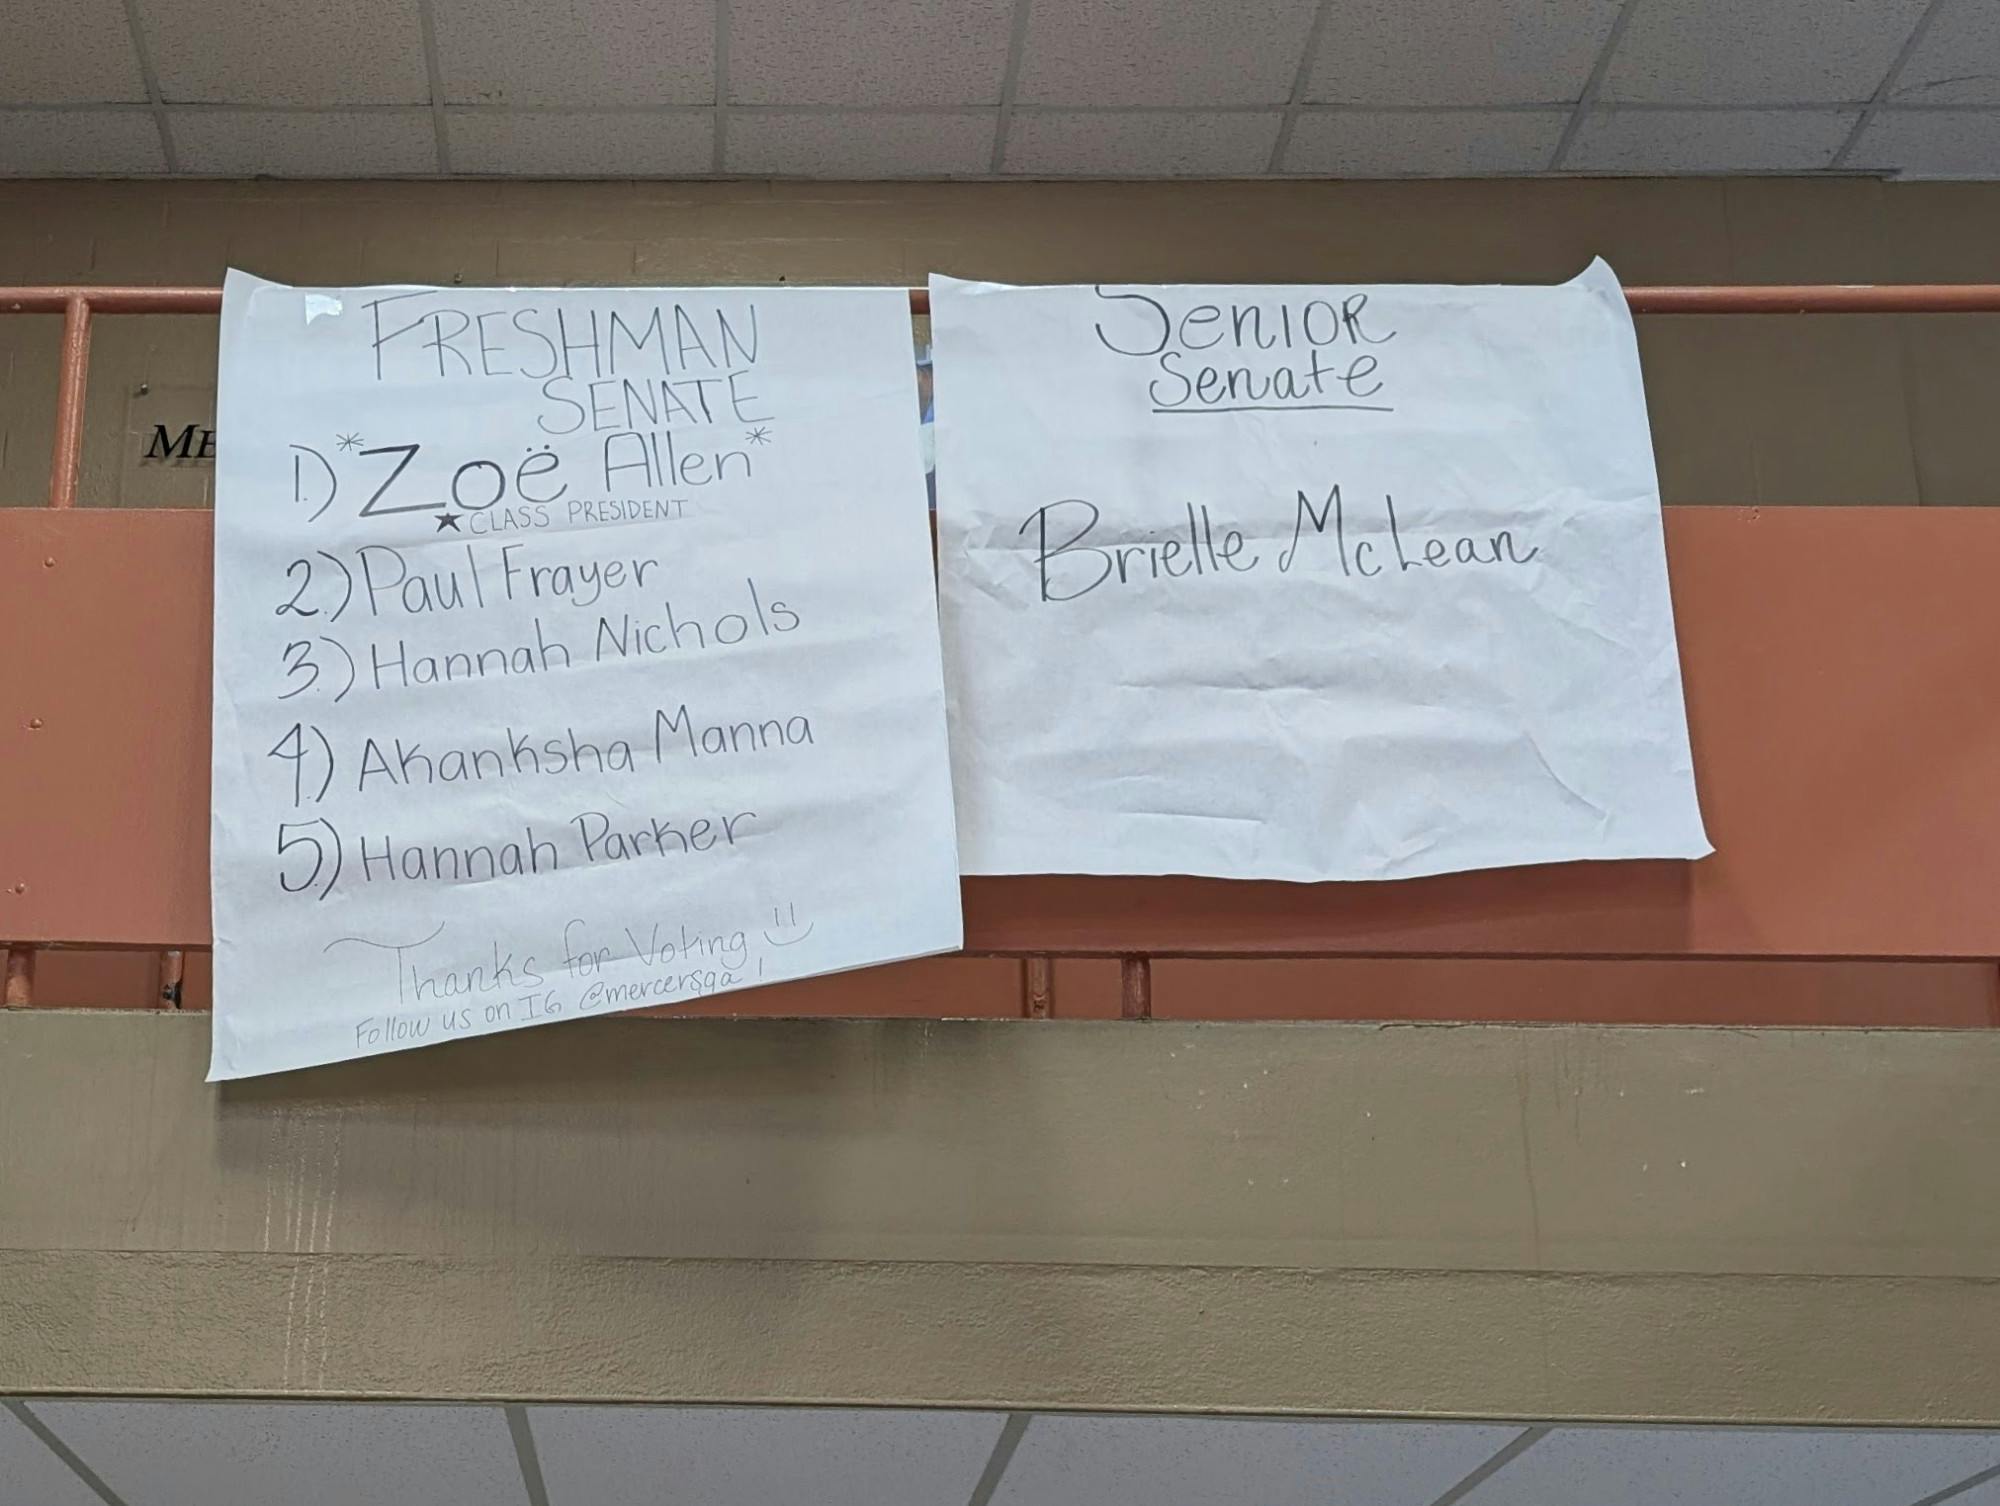 FRESHMAN
SENATE
1.) *Zoë Allen*
★ CLASS PRESIDENT
2.) Paul Frayer
3.) Hannah Nichols
4.) Akanksha Manna
5.) Hannah Parker
Thanks for Voting
Follow us on IG @mercersga!
SENIOR
Senate
Brielle McLean
ME